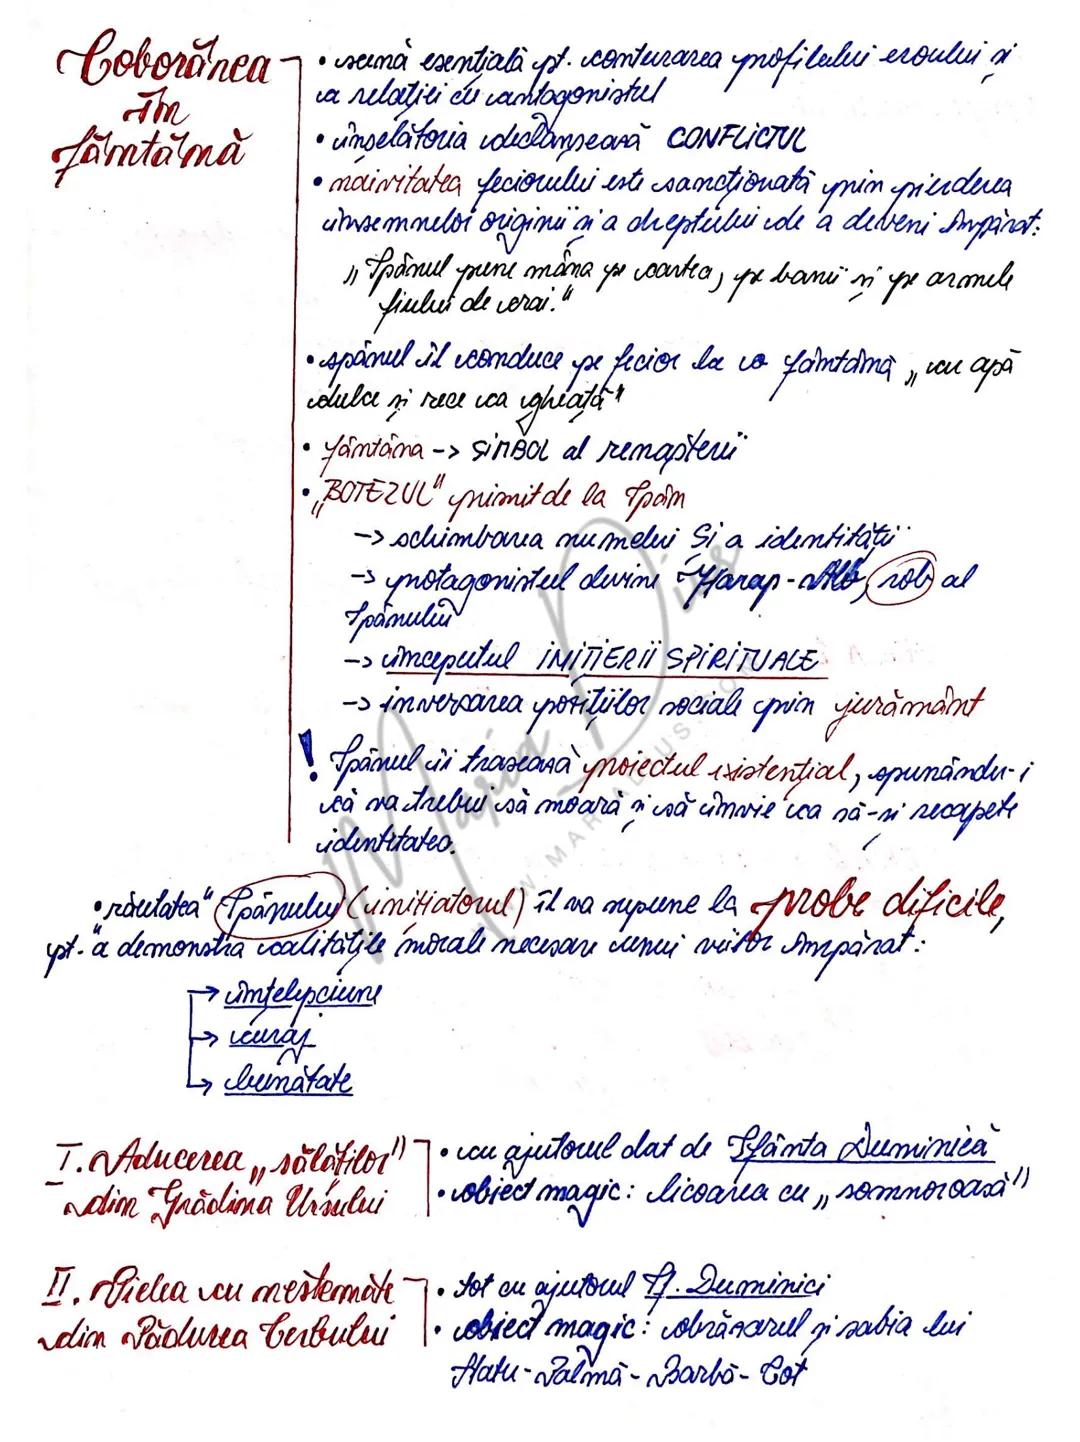 Coborârea
în
fântână
• scenă esențială pt. conturarea profilului eroului și
a relației cu antagonistul
• înșelătoria declanșează CONFLICTUL
• naivitatea feciorului este sancționată prin pierderea
însemnelor originii și a dreptului de a deveni Împărat:
„Spânul pune mâna pe cartea, pe banii și pe armele
fiului de crai."
• spânul îl conduce pe fecior la o fântână „cu apă
dulce și rece ca gheața"
• fântâna -> SIMBOL al renașterii
• „BOTEZUL" primit de la Spân
-> schimbarea numelui și a identității
-> protagonistul devine Harap-Alb, rob al
Spânului
-> începutul INIȚIERII SPIRITUALE
-> inversarea pozițiilor sociale prin jurământ
! Spânul îi trasează proiectul existențial, spunându-i
că va trebui să moară și să învie ca să-și recapete
identitatea.
• răutatea" Spânului (inițiatorul) îl va supune la probe dificile,
pt. a demonstra calitățile morale necesare unui viitor Împărat:
-> înțelepciune
-> curaj
-> bunătate
I. Aducerea „sălăților"
din Grădina Ursului
• cu ajutorul dat de Sfânta Duminică
• obiect magic: licoarea cu „somnoroasă"
II. Pielea cu nestemate
din Pădurea Cerbului
• tot cu ajutorul Sf. Duminici
• obiect magic: obrăzarul și sabia lui
Statu-Palmă-Barbă-Cot
Maria Dius